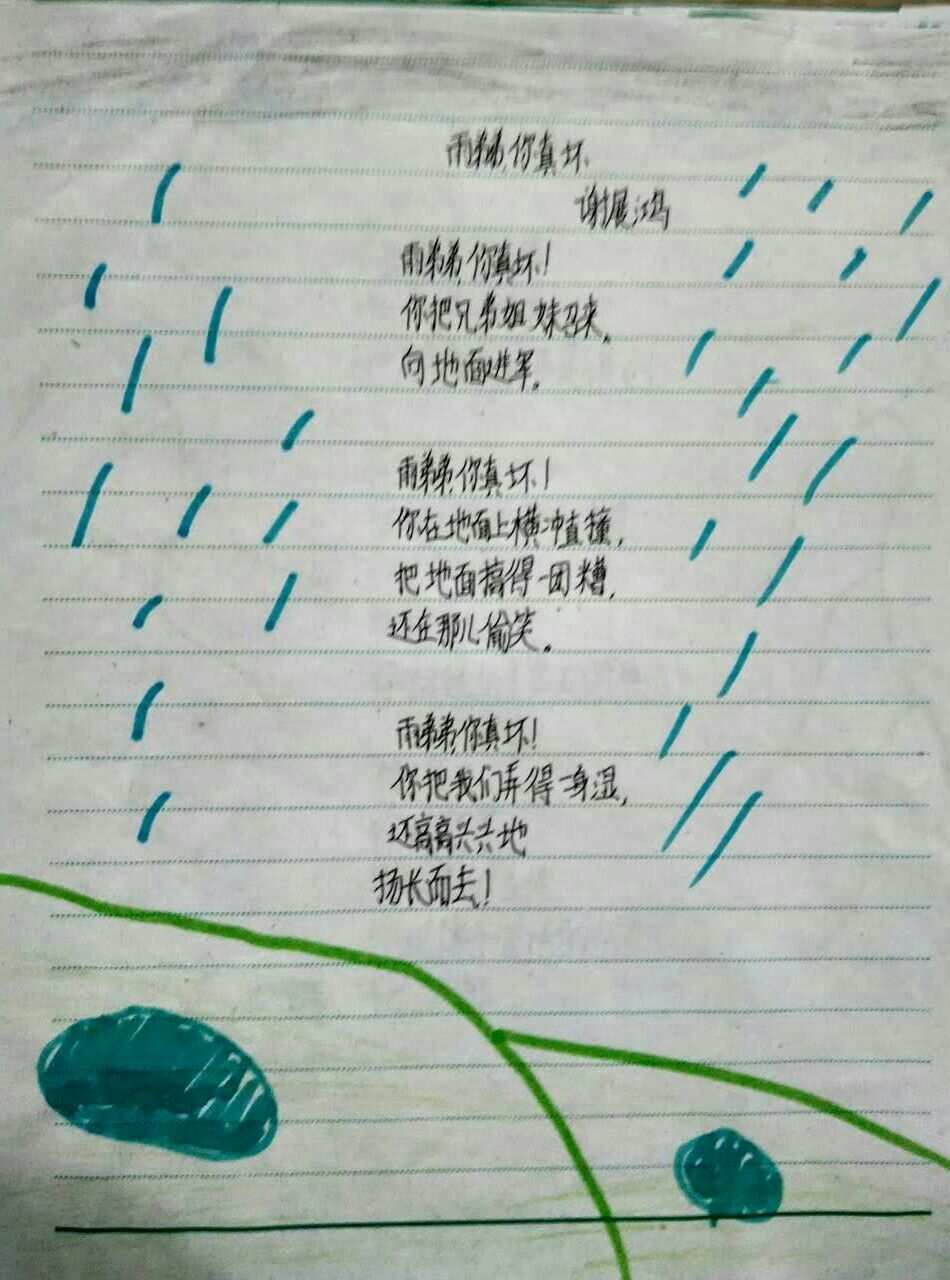 雨弟弟,你真坏
谢展鸿
雨弟弟,你真坏!
你把兄弟姐妹召来,
向地面进军。
雨弟弟,你真坏!
你在地面上横冲直撞,
把地面搞得一团糟,
还在那儿偷笑。
雨弟弟,你真坏!
你把我们弄得一身湿,
还高高兴兴地
扬长而去!